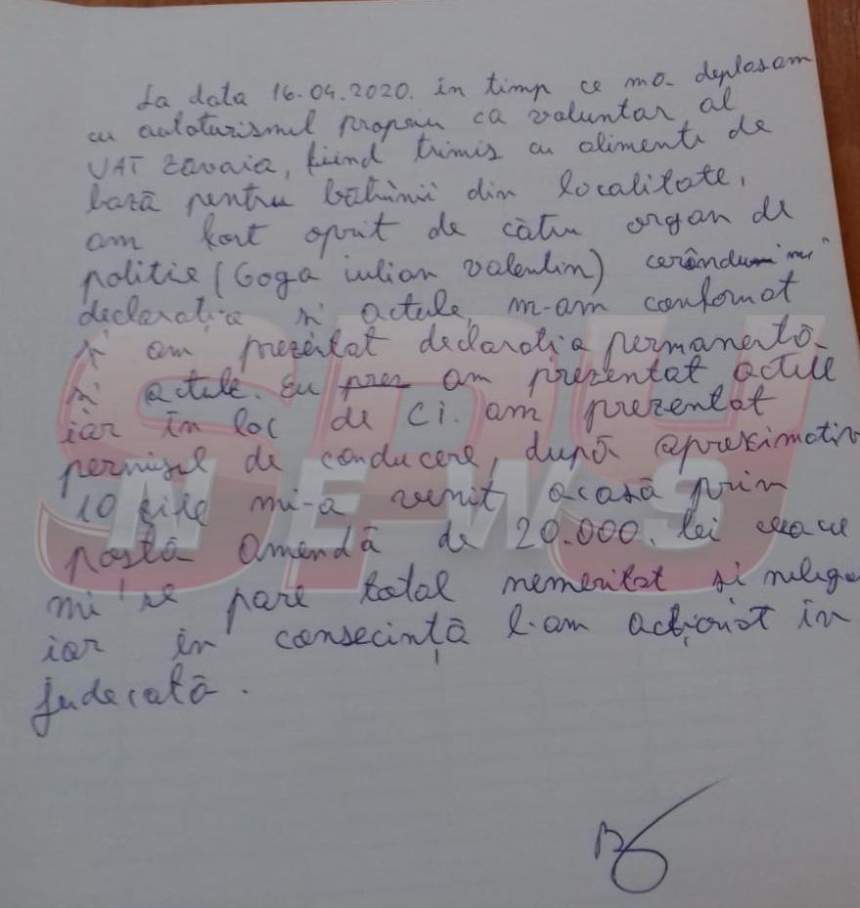 La data 16.04.2020. în timp ce mă deplasam
cu autoturismul propriu ca voluntar al
UAT Zăvoaia, fiind trimis cu alimente de
bază pentru bătrînii din localitate,
am fost oprit de către organ de
politie (Goga iulian valentin) cerândumi
declarația și actele, m-am conformat
și am prezentat declarația permanentă
și actele. Eu prez am prezentat actele
iar în loc de Ci. am prezentat
permisul de conducere, după aproximativ
10 zile mi-a venit acasă prin
poștă amendă de 20.000. lei ceea ce
mi se pare total nemeritat și nelega
iar în consecință l-am acționat în
judecată.
SPY
NEWS